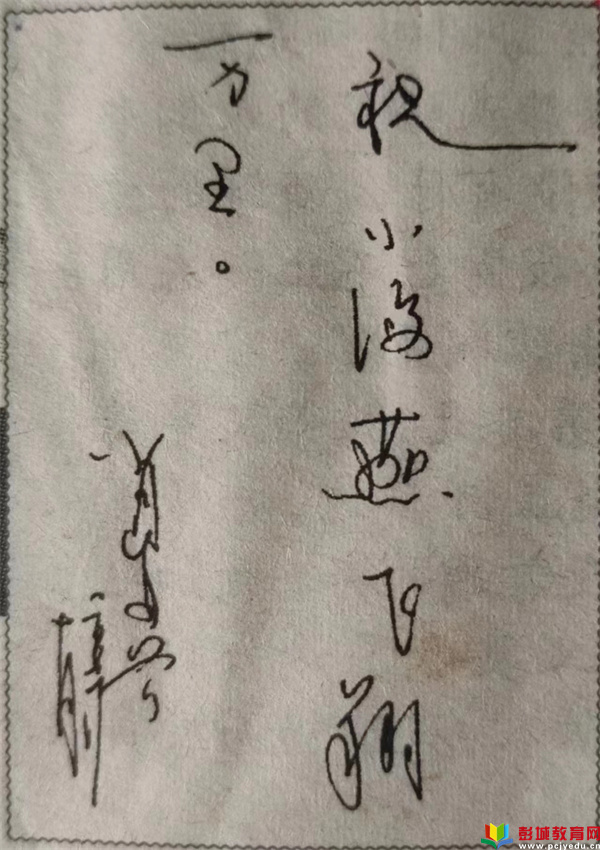 祝小海燕飞翔
一万里。
彭城教育网
www.pcjyedu.cn